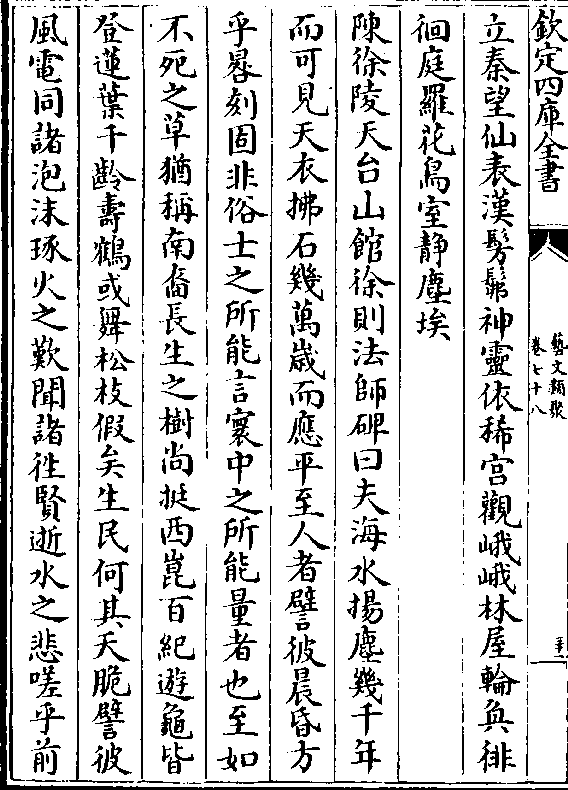 欽定四庫全書
藝文類聚
卷七十八
立秦望仙表漢髣髴神靈依稀宫觀峨峨林屋輪奐徘
徊庭羅花鳥室静塵埃
陳徐陵天台山館徐則法師碑曰夫海水揚塵幾千年
而可見天衣拂石幾萬歲而應平至人者譬彼晨昏方
乎晷刻固非俗士之所能言寰中之所能量者也至如
不死之草猶稱南裔長生之樹尚挺西崑百紀遊龜皆
登蓮葉千齡壽鶴或舞松枝假矣生民何其夭脆譬彼
風電同諸泡沫琢火之歎聞諸徃賢逝水之悲嗟乎前